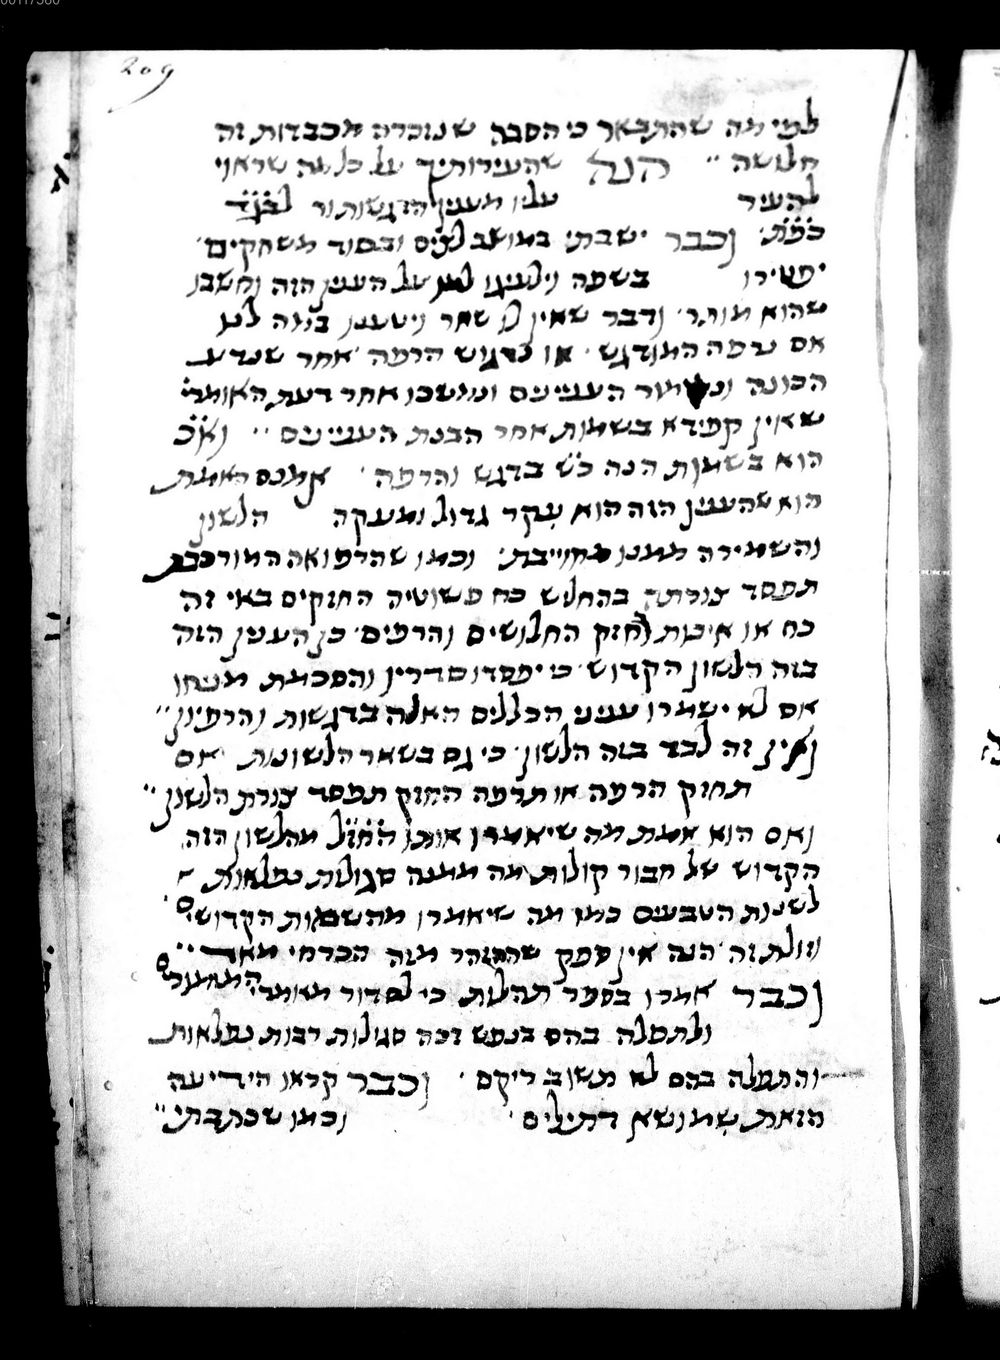 209
למי מה שהתבאר כי הסבה שנזכרה מכבדות זה
חלושה ״ הנה שהעירותיך על כל מה שראוי
להעיר עליו מענין הדגשות ור לבג״ד
כפ״ת׳ וכבר ישבתי במושב לצים ובסוד משחקים׳
יפטירו בשפה וילעיגו למו על הענין הזה וחשבו
שהוא מותר׳ ודבר שאין לו שחר ויטענו במה לנו
אם נרפה המודגש׳ או נדגיש הרפה אחר שנדע
הכונה ונשמור הענינים ונמשכו אחר דעת האומר
שאין קפידא בשמות אחר הבנת הענינים ״ וא״כ
הוא בשמות הנה כ״ש בדגש והרפה׳ אמנם האמת
הוא שהענין הזה הוא עקר גדול ומעקה הלשון
והשמירה ממנו מחוייבת׳ וכמו שהרפואה המורכבת
תפסד צורתה בהחליש כח פשוטיה החזקים באי זה
כח או איכות ולחזק החלושים והרפים׳ כן הענין הזה
בזה הלשון הקדוש׳ כי יפסדו סדריו והסכמת מנחו
אם לא ישמרו עניני הכללים האלה בדגשות והרפיון״
ואין זה לבד בזה הלשון׳ כי גם בשאר הלשונות אם
תחזק הרפה או תרפה החזק תפסד צורת הלשון״
ואם הוא אמת מה שיאמרו אותו חז״ל מהלשון הזה
הקדוש של חבור קולות מה ממנה סגולות נפלאות
לשנות הטבעים כמו מה שיאמרו מהשמות הקדושים
וזולת זה׳ הנה אין ספק שהזוהר מזה הכרחי מאד ״
וכבר אמרו בספר תהלות כי לסדור מאמר המזמורים
ולתפלה בהם בנפש זכה סגולות רבות נפלאות
והתפלה בהם לא תשוב ריקם׳ וכבר קראו הידיעה
הזאת שמושא דתילים׳ וכמו שכתבתי״